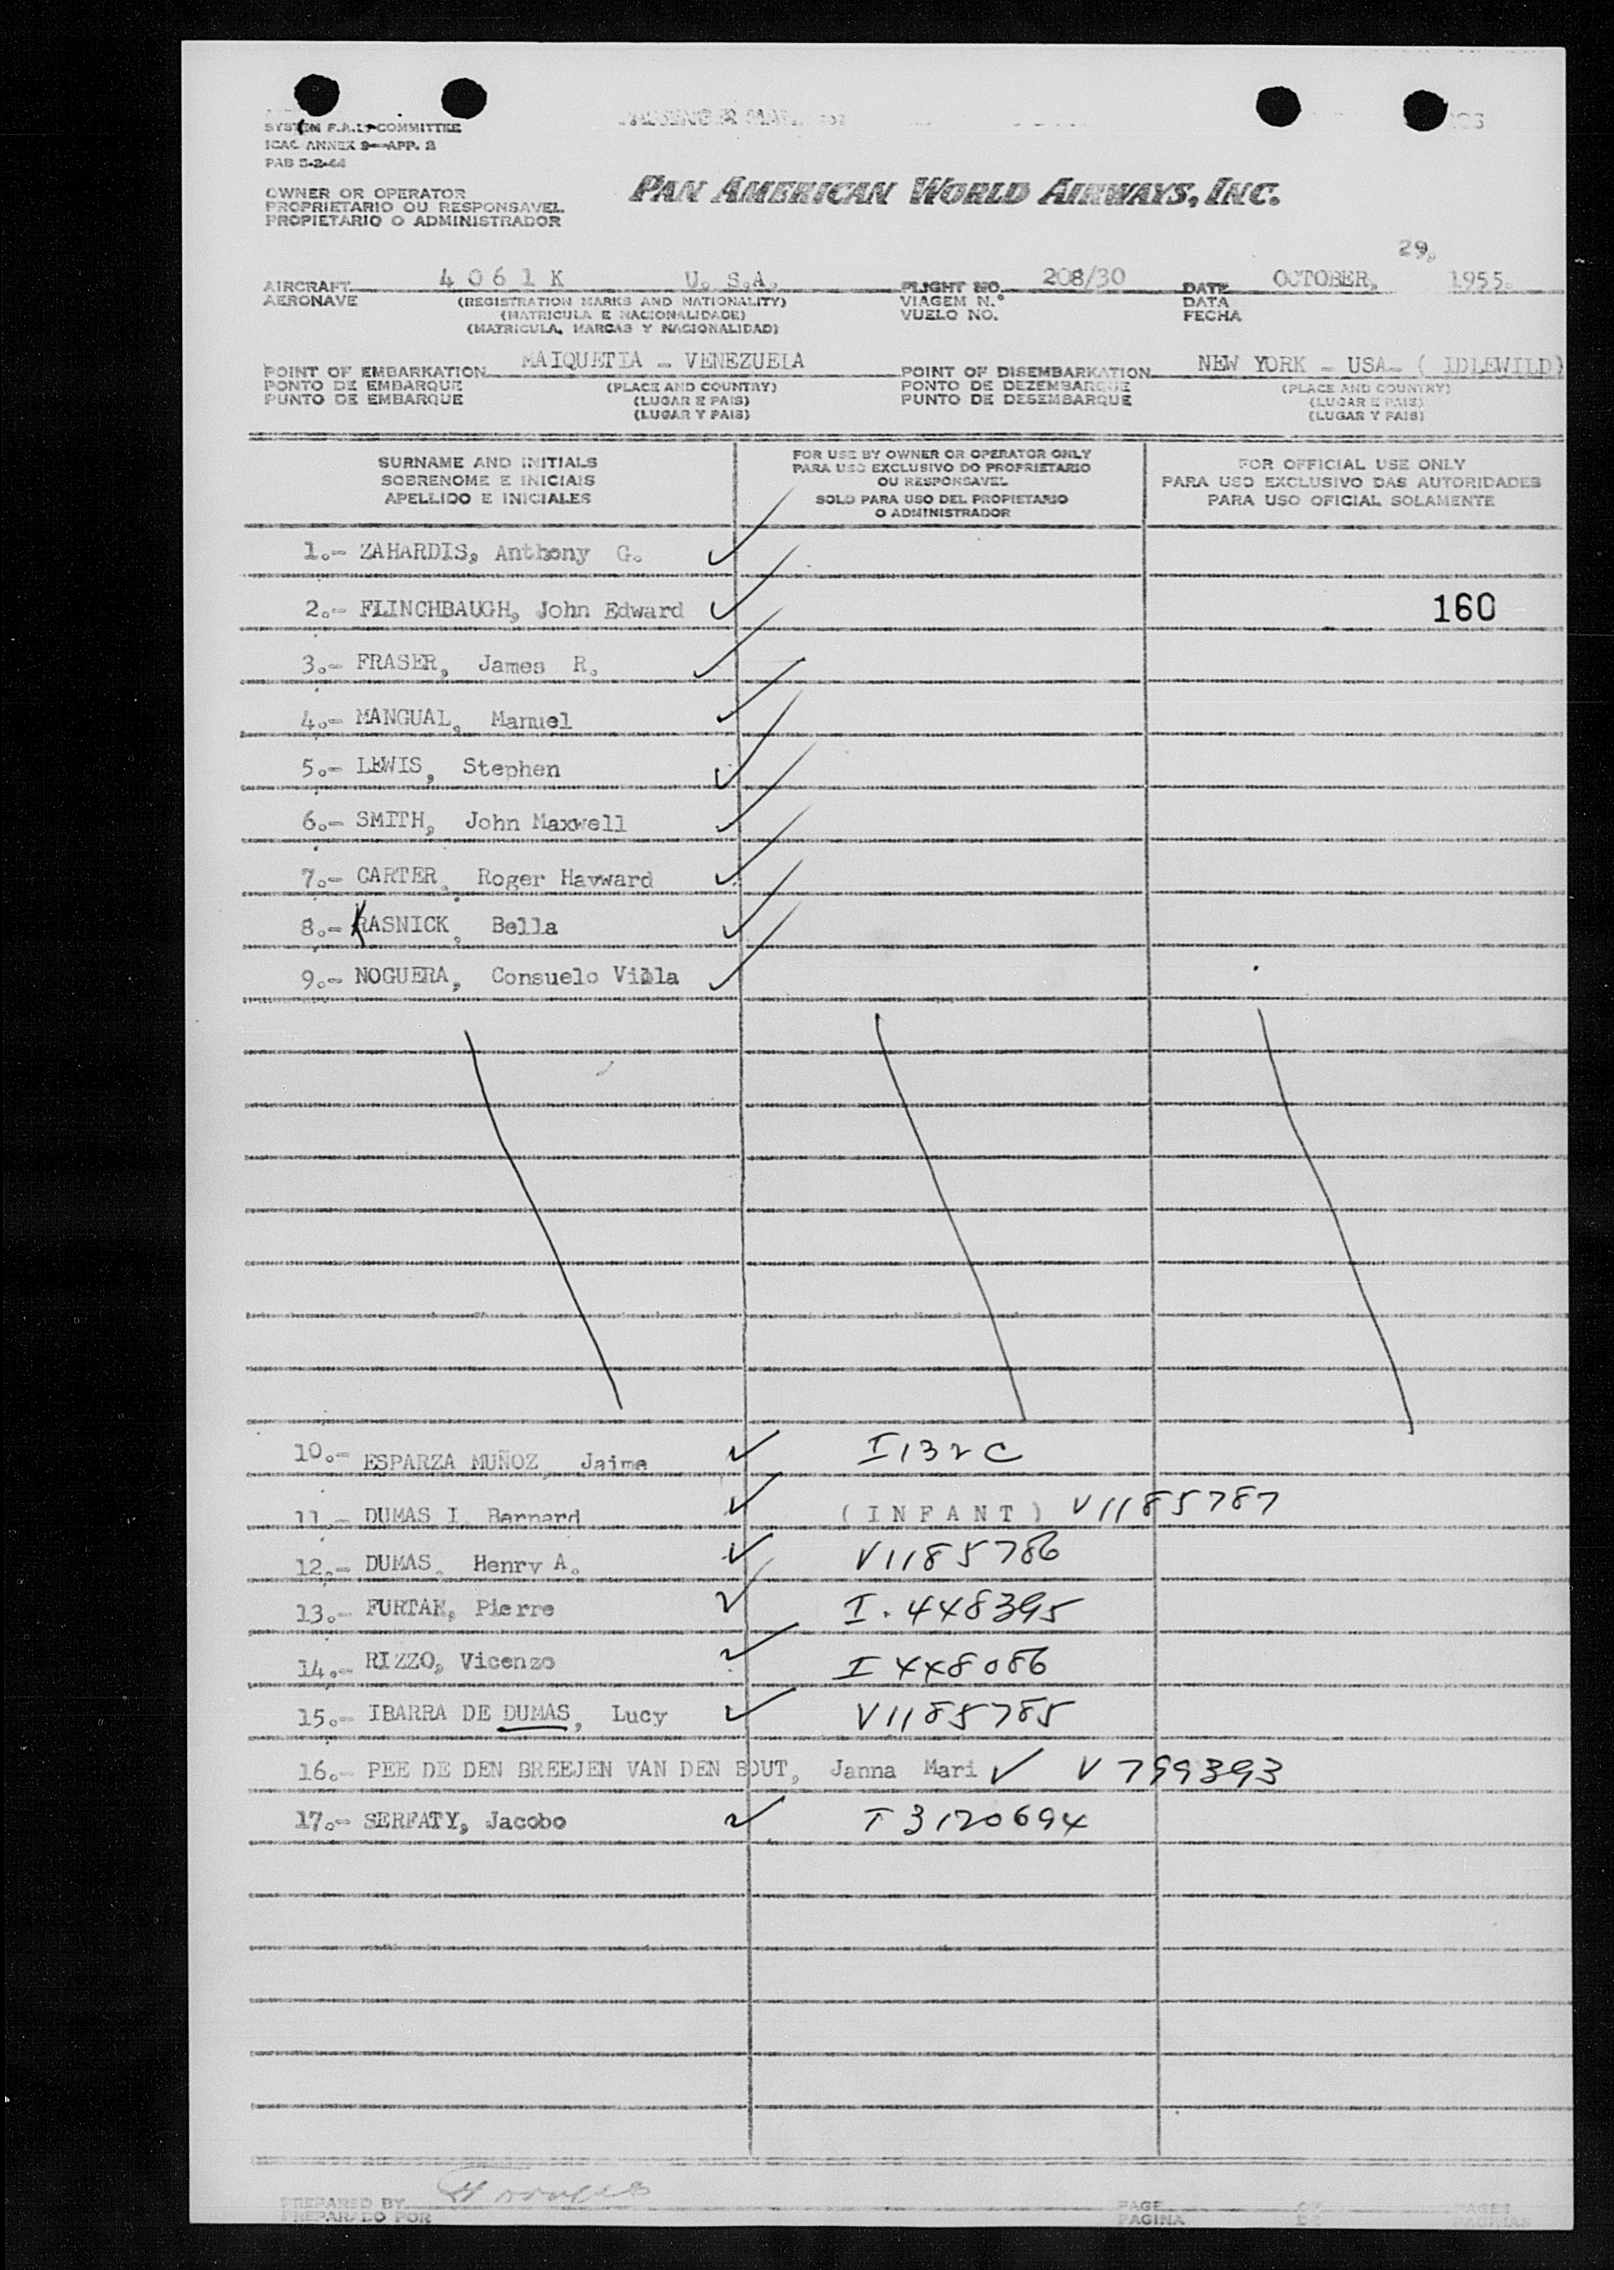 SYSTEM F.A.L. COMMITTEE
ICAO ANNEX 9—APP. 3
PASSENGER MANIFEST
OWNER OR OPERATOR
PROPRIETARIO OU RESPONSAVEL
PROPIETARIO O ADMINISTRADOR
PAN AMERICAN WORLD AIRWAYS, INC.
29,
AIRCRAFT 4 0 6 1 K U. S.A. FLIGHT NO. 208/30 DATE OCTOBER, 1955.
AERONAVE (REGISTRATION MARKS AND NATIONALITY) VIAGEM N.° DATA
(MATRICULA E NACIONALIDADE) VUELO NO. FECHA
(MATRICULA, MARCAS Y NACIONALIDAD)
POINT OF EMBARKATION MAIQUETIA - VENEZUELA POINT OF DISEMBARKATION NEW YORK - USA- ( IDLEWILD)
PONTO DE EMBARQUE (PLACE AND COUNTRY) PONTO DE DEZEMBARQUE (PLACE AND COUNTRY)
PUNTO DE EMBARQUE (LUGAR E PAIS) PUNTO DE DESEMBARQUE (LUGAR E PAIS)
(LUGAR Y PAIS) (LUGAR Y PAIS)
SURNAME AND INITIALS
SOBRENOME E INICIAIS
APELLIDO E INICIALES
FOR USE BY OWNER OR OPERATOR ONLY
PARA USO EXCLUSIVO DO PROPRIETARIO
OU RESPONSAVEL
SOLO PARA USO DEL PROPIETARIO
O ADMINISTRADOR
FOR OFFICIAL USE ONLY
PARA USO EXCLUSIVO DAS AUTORIDADES
PARA USO OFICIAL SOLAMENTE
1.- ZAHARDIS, Anthony G.
2.- FLINCHBAUGH, John Edward 160
3.- FRASER, James R.
4.- MANGUAL, Manuel
5.- LEWIS, Stephen
6.- SMITH, John Maxwell
7.- CARTER, Roger Hayward
8.- KASNICK, Bella
9.- NOGUERA, Consuelo Villa
10.- ESPARZA MUÑOZ, Jaime I132C
11.- DUMAS I. Bernard ( I N F A N T ) V1185787
12.- DUMAS, Henry A. V1185786
13.- FURTAK, Pierre I.448395
14.- RIZZO, Vicenzo I 448086
15.- IBARRA DE DUMAS, Lucy V1185785
16.- PEE DE DEN BREEJEN VAN DEN BOUT, Janna Mari V799393
17.- SERFATY, Jacobo I3120694
PREPARED BY PAGE OF PAGES
PREPARADO POR PAGINA DE PAGINAS